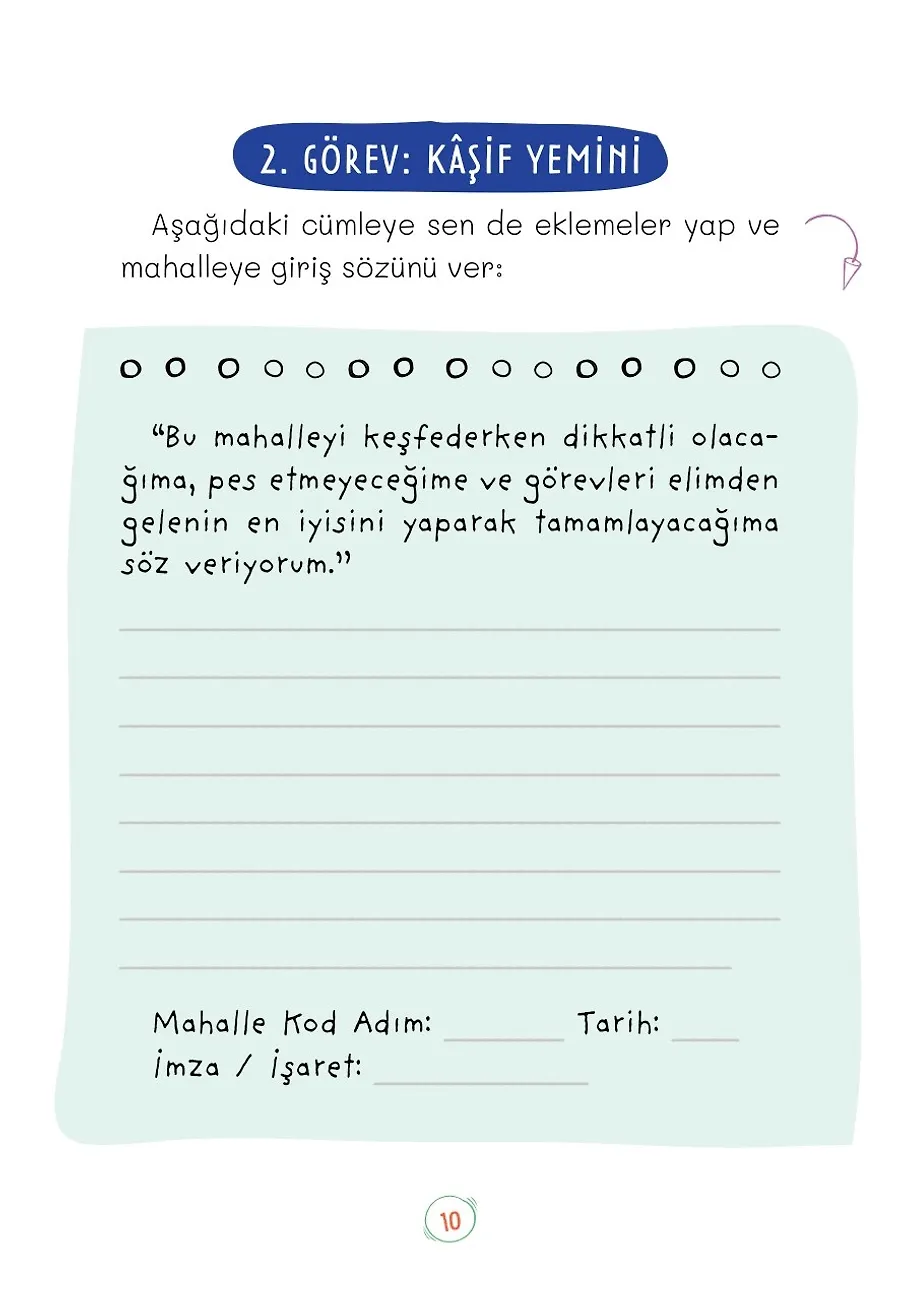 2. GÖREV: KÂŞİF YEMİNİ
Aşağıdaki cümleye sen de eklemeler yap ve
mahalleye giriş sözünü ver:
“Bu mahalleyi keşfederken dikkatli olaca-
ğıma, pes etmeyeceğime ve görevleri elimden
gelenin en iyisini yaparak tamamlayacağıma
söz veriyorum.”
Mahalle Kod Adım: Tarih:
İmza / İşaret:
10